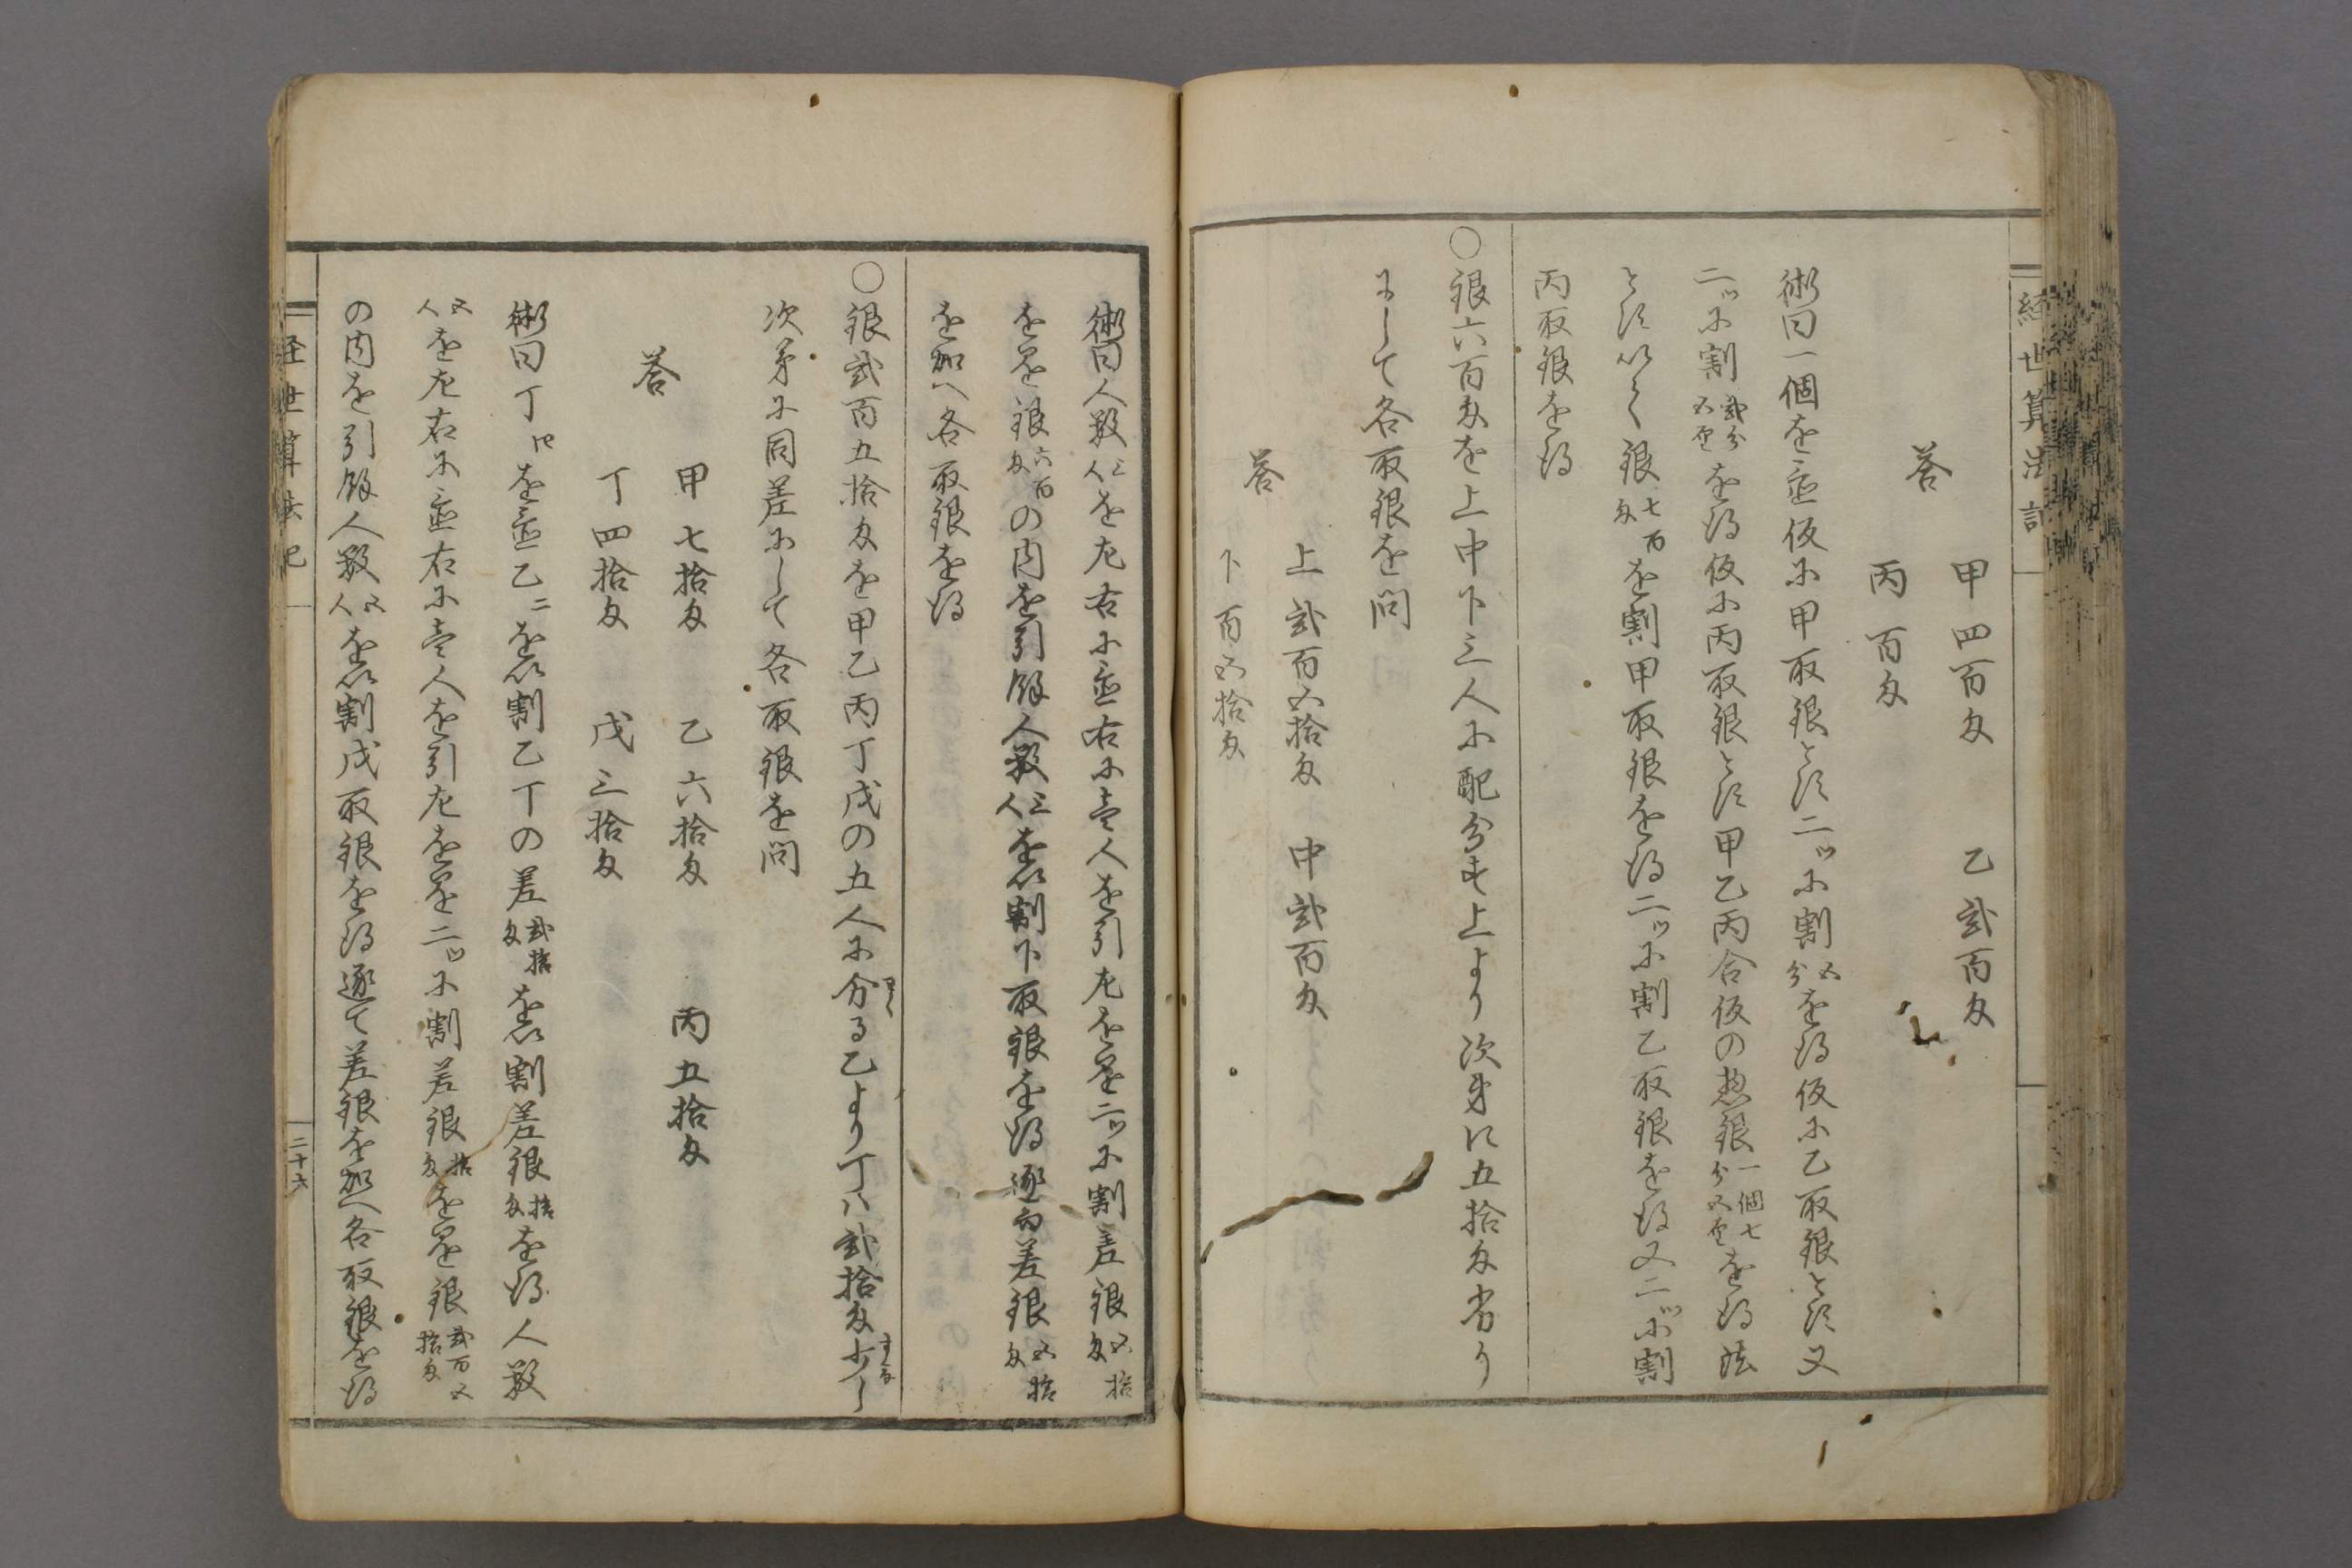 経世算法記
答
甲四百匁　乙弐百匁
丙百匁
術曰一個を置仮に甲取銀とす二ツに割五分を得仮に乙取銀とす又
二ツに割弐分五厘を得仮に丙取銀とす甲乙丙合仮の惣銀一個七分五厘を得法
とす以て銀七百匁を割甲取銀を得二ツに割乙取銀を得又二ツに割
丙取銀を得
○銀六百匁を上中下三人に配分す上より次第に五拾匁劣り
にして各取銀を問
答
上弐百五拾匁　中弐百匁
下百五拾匁
術曰人数三人を左右に置右に壱人を引左を乗二ツに割差銀五拾匁
を乗銀六百匁の内を引餘人数三人を以割下取銀を得逐而差銀五拾匁
を加へ各取銀を得
○銀弐百五拾匁を甲乙丙丁戊の五人に分る乙より丁ハ弐拾匁少し
次第に同差にして各取銀を問
答
甲七拾匁　乙六拾匁　丙五拾匁
丁四拾匁　戊三拾匁
術曰丁四を置乙二を以割乙丁の差弐拾匁を以割差銀拾匁を得人数
五人を左右に置右に壱人を引左を乗二ツに割差銀拾匁を乗銀弐百五拾匁
の内を引餘人数五人を以割戊取銀を得逐て差銀を加へ各取銀を得
経世算法記
二十六